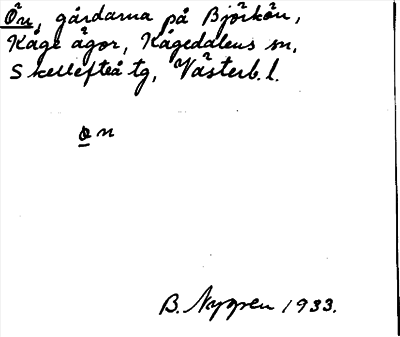 Ön, gårdarna på Björkön,
Kåge ägor, Kågedalens sn,
Skellefteå tg, Västerb. l.
ön
B. Nygren 1933.